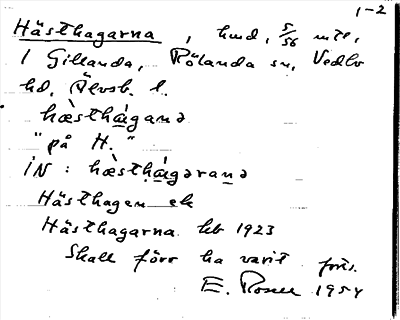 1-2
Hästhagarna, hmd, 5/56 mtl,
1 Gillanda, Rölanda sn, Vedbo
hd, Älvsb. l.
hæ̀sthá̱gana
"på H."
iN: hæ̀sthá̱garana
Hästhagen ek
Hästhagarna hb 1923
Skall förr ha varit
E. Rosell 1954